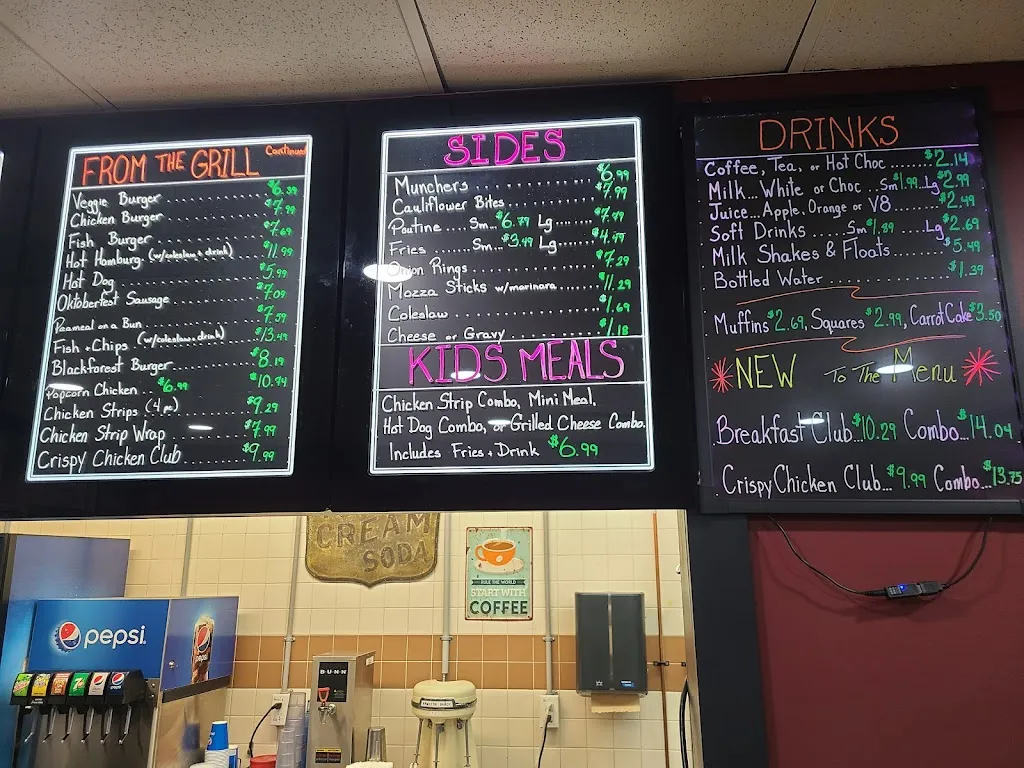 FROM THE GRILL Continued
Veggie Burger $6.39
Chicken Burger $7.99
Fish Burger $7.69
Hot Hamburg (w/coleslaw + drink) $11.99
Hot Dog $5.99
Oktoberfest Sausage $7.09
Peameal on a Bun $7.59
Fish + Chips (w/coleslaw + drink) $13.49
Blackforest Burger $8.19
Popcorn Chicken $6.99 $10.74
Chicken Strips (4 pc) $9.29
Chicken Strip Wrap $7.99
Crispy Chicken Club $9.99
SIDES
Munchers $6.99
Cauliflower Bites $7.99
Poutine Sm $6.79 Lg $7.99
Fries Sm $3.49 Lg $4.49
Onion Rings $7.29
Mozza Sticks w/marinara $11.29
Coleslaw $1.69
Cheese or Gravy $1.18
KIDS MEALS
Chicken Strip Combo, Mini Meal,
Hot Dog Combo, or Grilled Cheese Combo.
Includes Fries + Drink $6.99
DRINKS
Coffee, Tea, or Hot Choc $2.14
Milk...White or Choc...Sm $1.99 Lg $2.99
Juice...Apple, Orange or V8 $2.49
Soft Drinks Sm $1.89 Lg $2.69
Milk Shakes & Floats $5.49
Bottled Water $1.39
Muffins $2.69, Squares $2.99, Carrot Cake $3.50
NEW To The Menu
Breakfast Club...$10.29 Combo...$14.04
Crispy Chicken Club...$9.99 Combo...$13.75
CREAM
SODA
RULE THE WORLD
START WITH
COFFEE
pepsi
BUNN